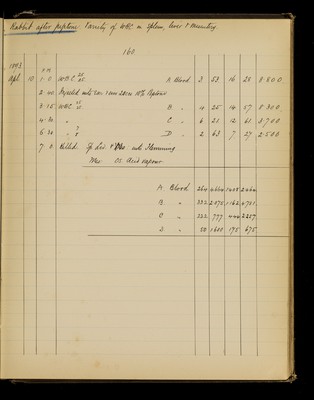 Rabbit after peptone. Variety of WBC in spleen, liver & mesentery.
160
1893 P.M.
Apl. 10 1·0 WBC A Blood 3 53 16 28 8 800
2·40 Injected into 10% Peptone
3·15 WBC B " 4 25 14 57 5 300
4·30 " C " 6 25 12 61 3 700
6·30 " D " 2 63 7 27 2 500
7·0 Killed. Liv. & into Flemming
Mes. Os Acid vapour
A Blood 264 4664 1408 2464
B " 332 2075 1162 4731
C " 222 777 444 2257
D " 50 1600 175 675